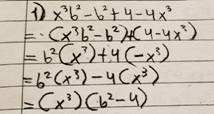 1) x³b²-b²+4-4x³
=(x³b²-b²)+(4-4x³)
=b²(x³)+4(-x³)
=b²(x³)-4(x³)
=(x³)(b²-4)